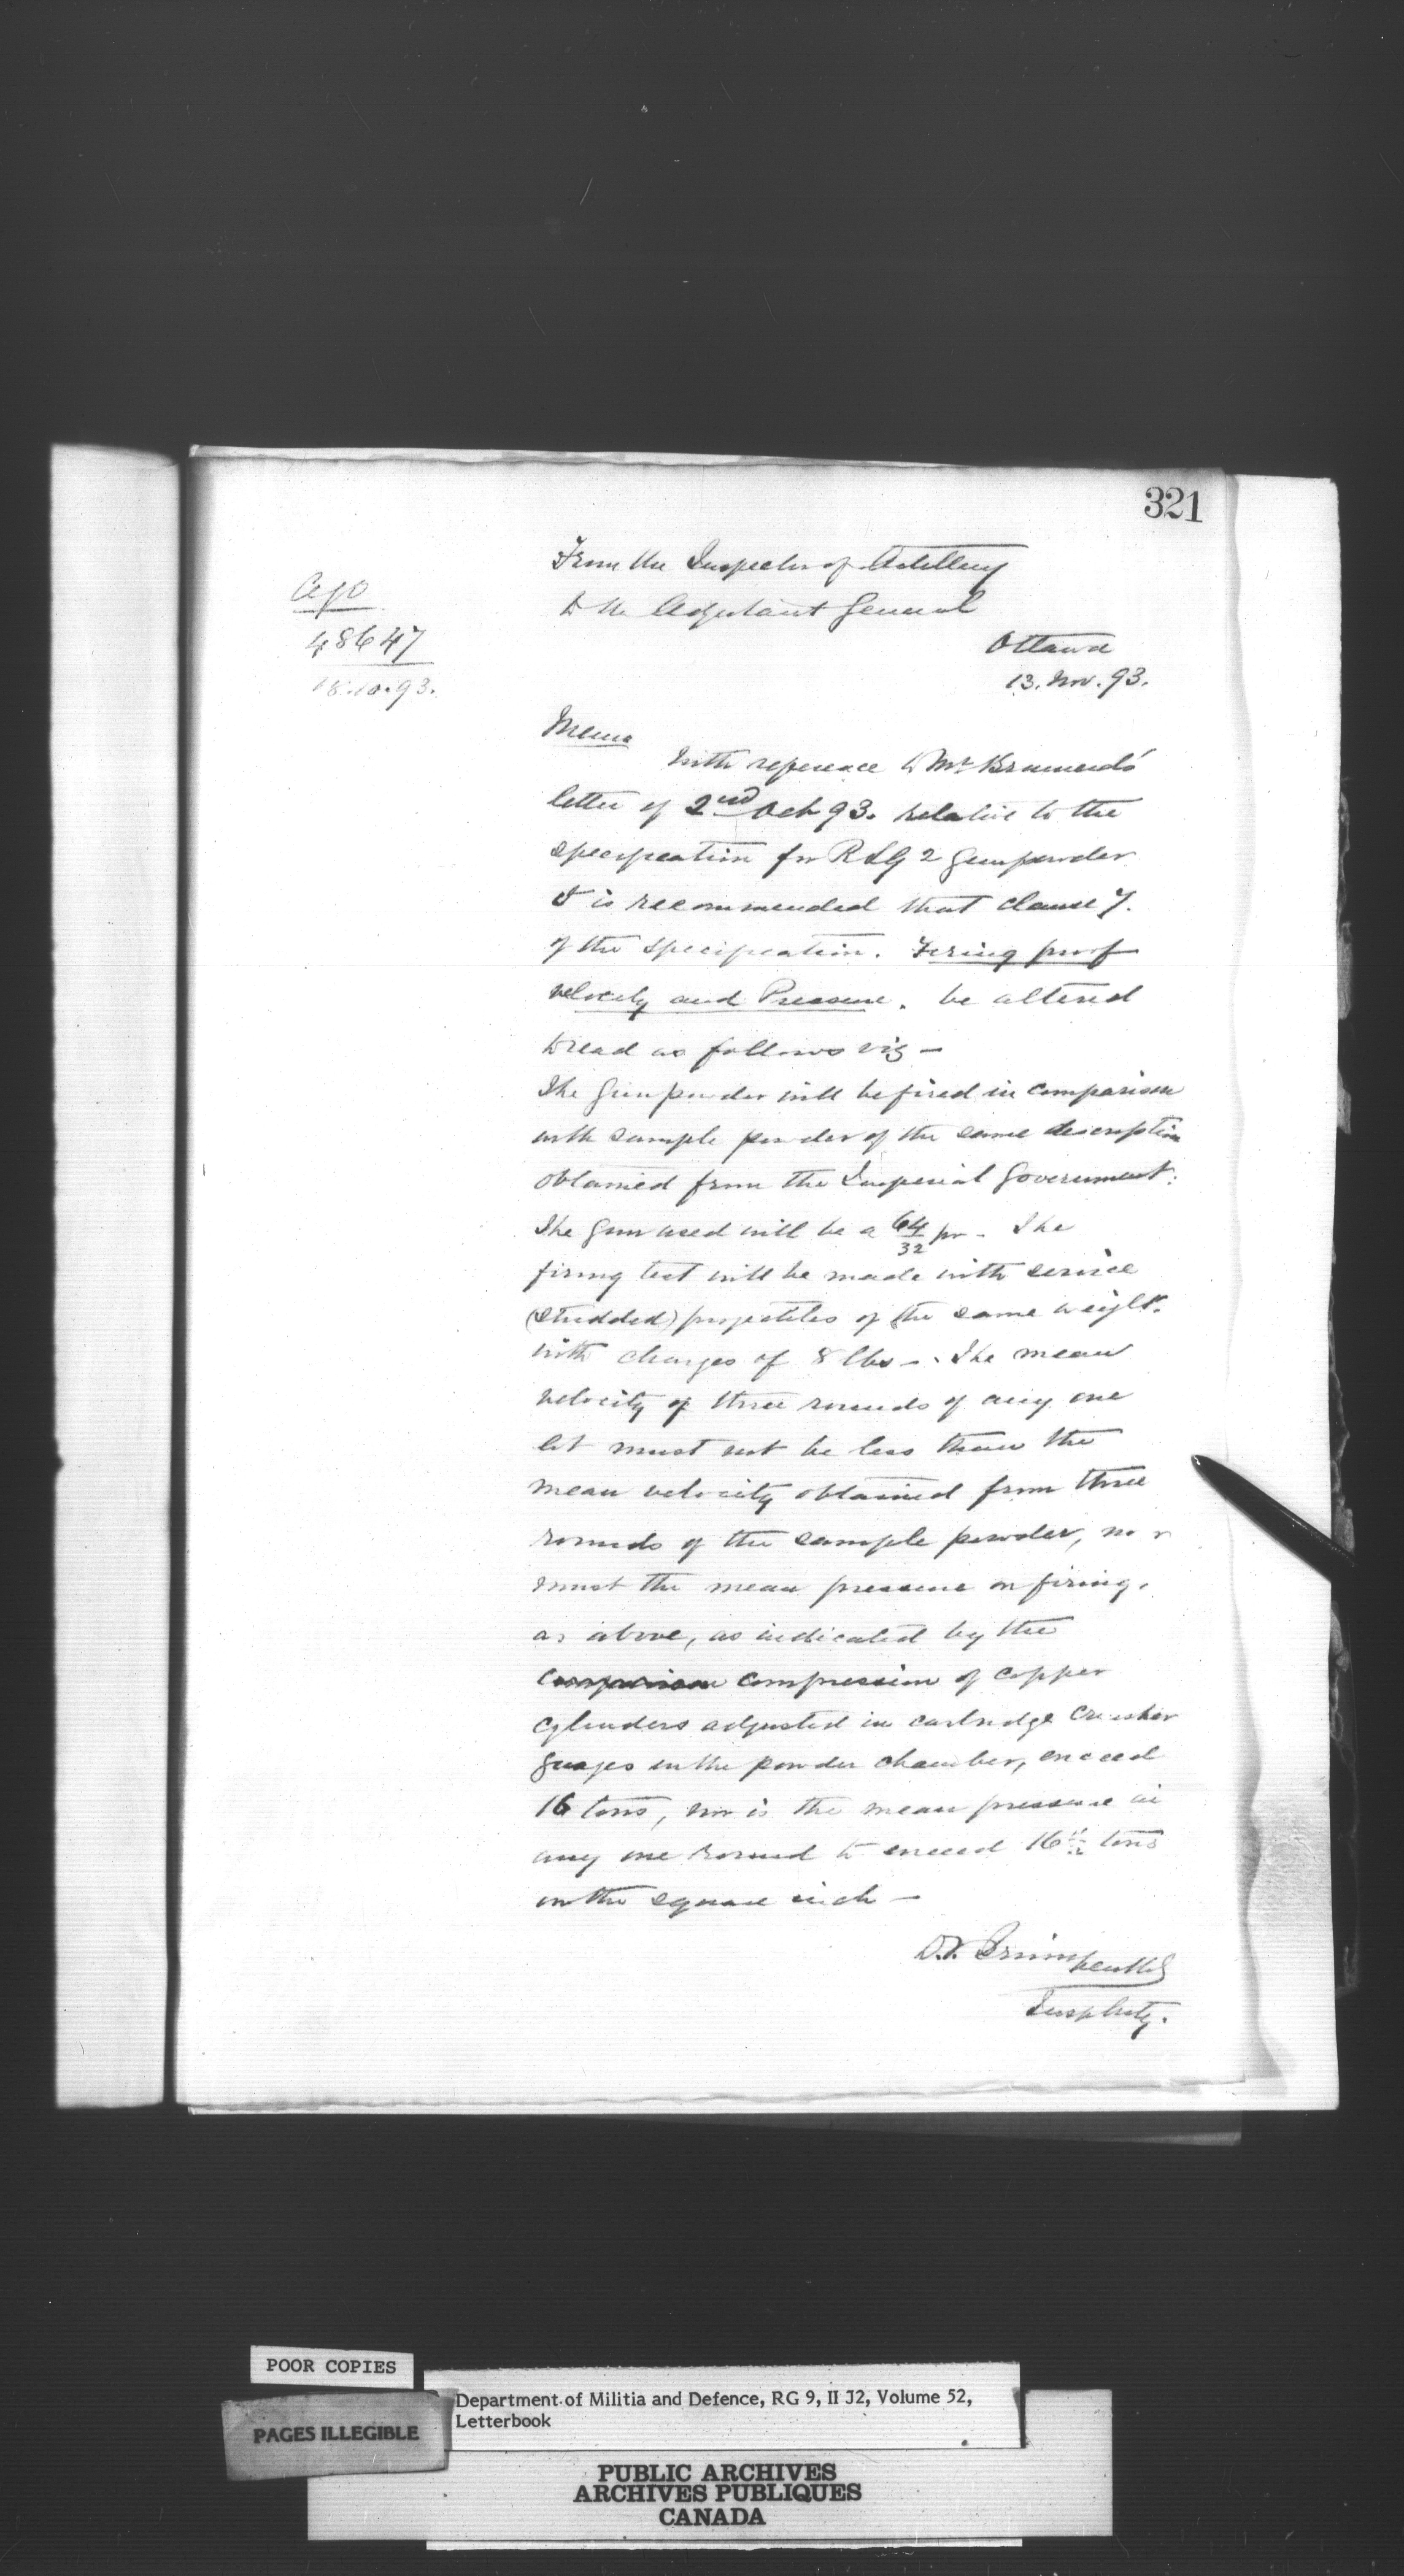 321
From the Inspector of Artillery
to the Adjutant General
48647
18.10.93.
Ottawa
13. Nov. 93.
Memo
With reference to Mr
letter of 2nd Oct 93. relative to the
specification for RLG 2 Gunpowder
it is recommended that clause 7.
of the specification. Firing proof
velocity and Pressure. be altered
to read as follows viz -
The Gunpowder will be fired in comparison
with sample powder of the same description
obtained from the Imperial Government:
The Gun used will be a 64/32 pr - The
firing test will be made with service
(studded) projectiles of the same weight.
with charges of 8 lbs -. The mean
velocity of three rounds of any one
lot must not be less than the
mean velocity obtained from three
rounds of the sample powder, nor
must the mean pressure on firing,
as above, as indicated by the
comparison compression of copper
cylinders adjusted in cartridge crusher
guages in the powder chamber, exceed
16 tons, nor is the mean pressure in
any one round to exceed 16 1/2 tons
on the square inch -
POOR COPIES
PAGES ILLEGIBLE
Department of Militia and Defence, RG 9, II J2, Volume 52,
Letterbook
PUBLIC ARCHIVES
ARCHIVES PUBLIQUES
CANADA